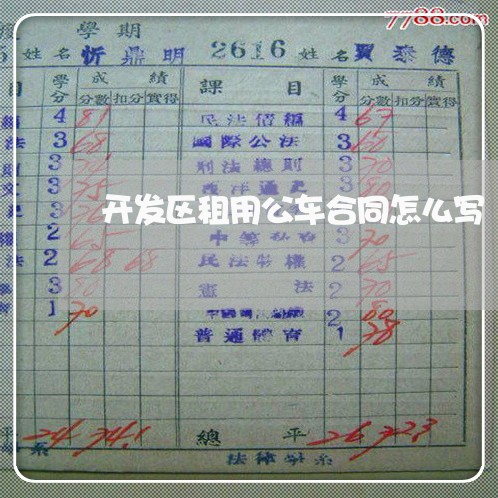 7788.com
學期
姓名 忻鼎明 2616 姓名 賈泰德
目 學分 成績 課目 學分 成績
分數 扣分 實得 分數 扣分 實得
4 81 民法債編 4 67
法 3 68 國際公法 3 60
3 刑法總則 3 70
3 75 西洋通史 3 80
开发区租用公车合同怎么写
2 65 3 70
法 2 68 68 民法物權 2 65
3 80 憲法 2 70
1 70 2 80
普通體育 1 78
平 24 74.1 總平 26 72.3
系 法律學系